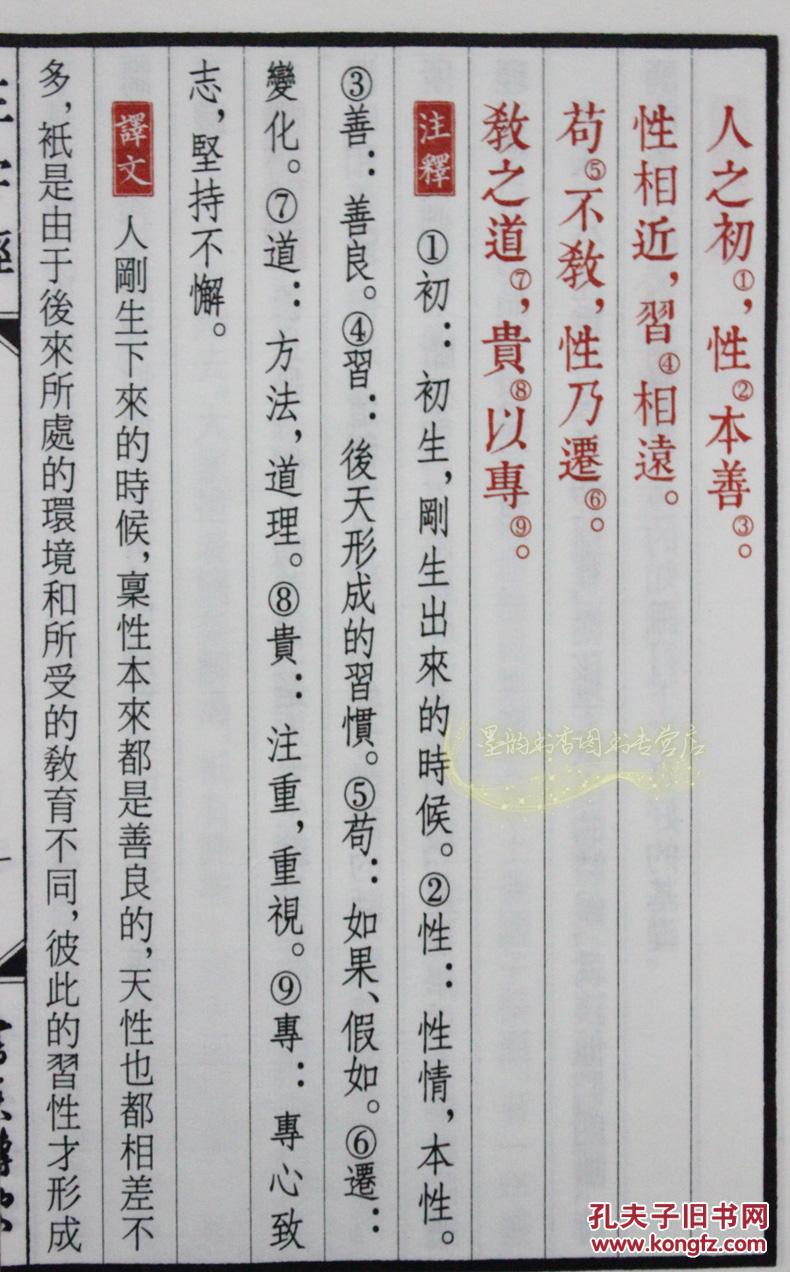 人之初①，性②本善③。
性相近，習④相遠。
苟⑤不教，性乃遷⑥。
教之道⑦，貴⑧以專⑨。
注釋 ①初：初生，剛生出來的時候。②性：性情，本性。
③善：善良。④習：後天形成的習慣。⑤苟：如果、假如。⑥遷：
變化。⑦道：方法，道理。⑧貴：注重，重視。⑨專：專心致
志，堅持不懈。
譯文 人剛生下來的時候，稟性本來都是善良的，天性也都相差不
多，衹是由于後來所處的環境和所受的教育不同，彼此的習性才形成
墨韵书香图书专营店
孔夫子旧书网
www.kongfz.com